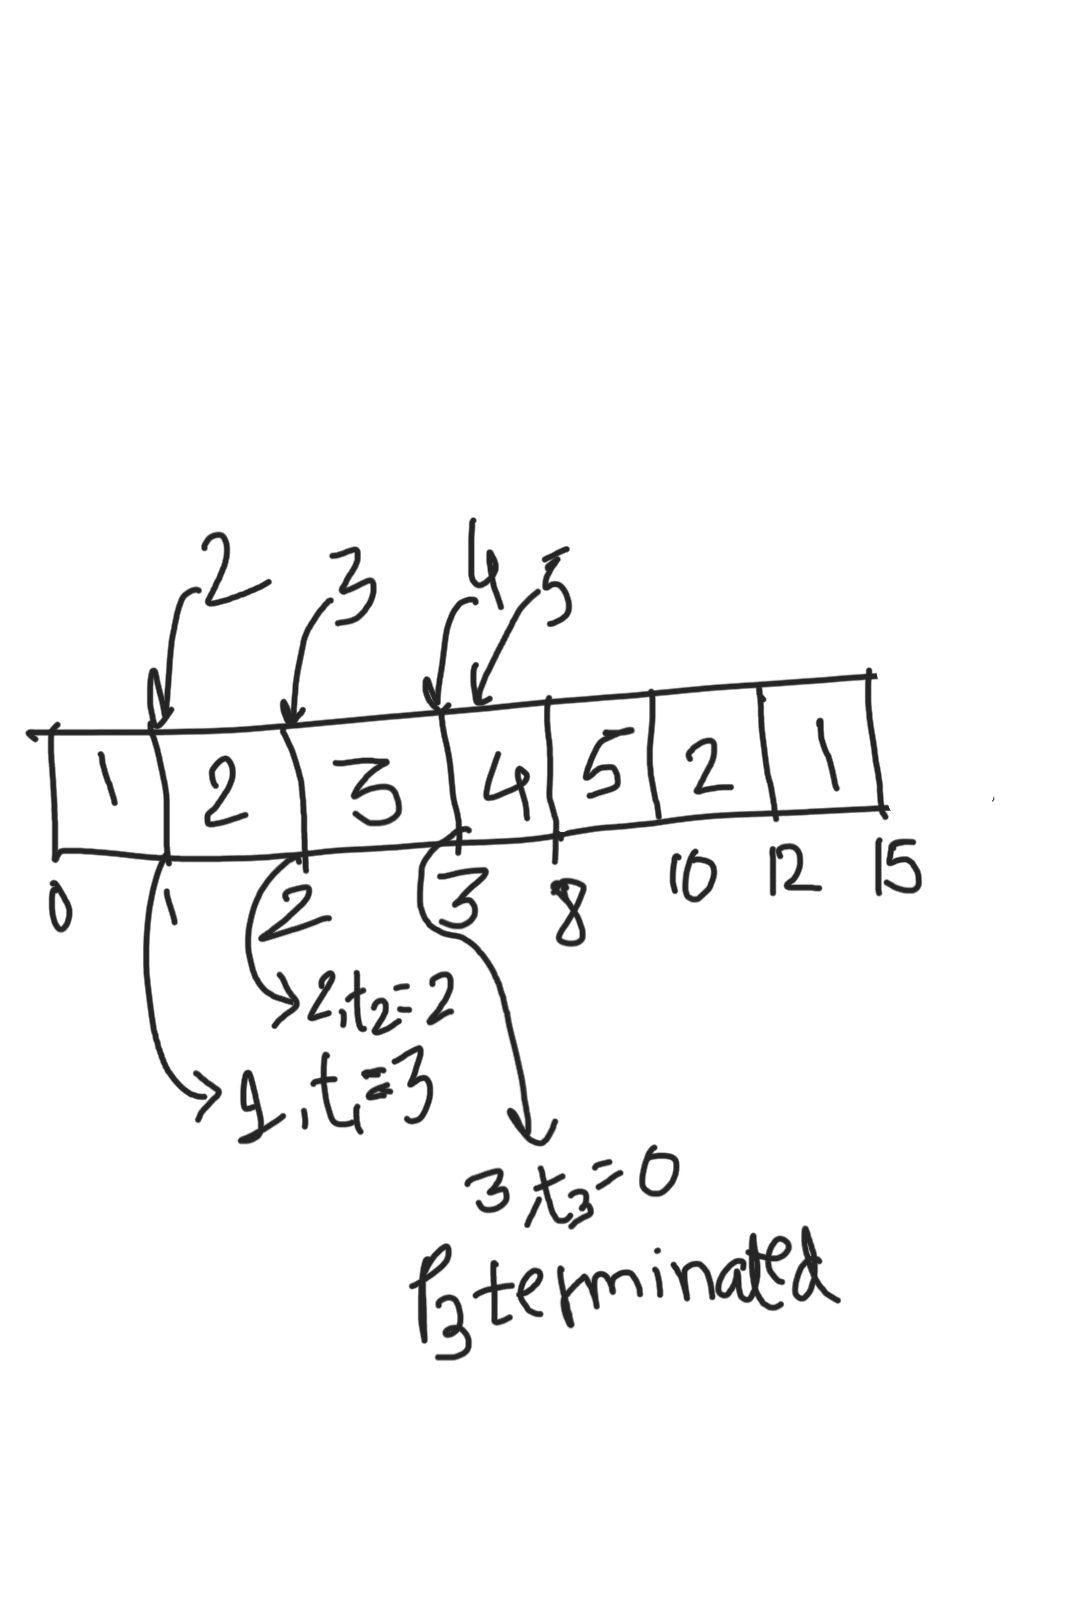 2 3 4 5
1 2 3 4 5 2 1
0 1 2 3 8 10 12 15
2, t2 = 2
1, t1 = 3
3, t3 = 0
P3 terminated